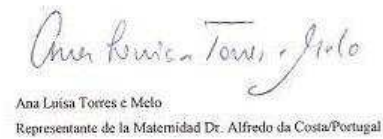 Ana Luisa Torres e Melo
Ana Luisa Torres e Melo
Representante de la Maternidad Dr. Alfredo da Costa/Portugal